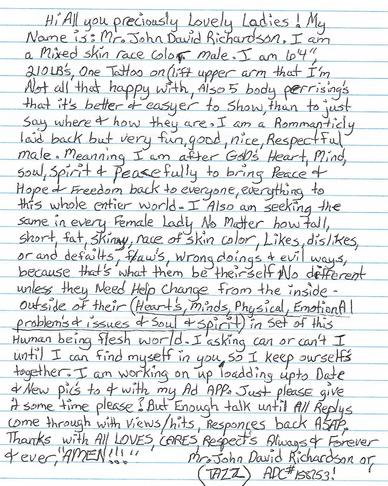 Hi All you preciously Lovely Ladies! My
Name is: Mr. John David Richardson. I am
a Mixed skin race color male. I am 6'4"
210LB's, One Tattoo on (lift upper arm that I'm
Not all that happy with, Also 5 body perrising's
that it's better & easyer to Show, than to just
Say where & how they are. I am a Rommanticly
laid back but very fun, good, nice, Respectful
male. Meanning I am after God's Heart, Mind,
soul, Spirit & Peacefully to bring Peace &
Hope & Freedom back to everyone, everything to
this whole entier world. I Also am seeking the
same in every Female Lady No Matter how tall,
short, fat, skinny, race of skin color, Likes, dislikes,
or and defaults, flaw's, wrong doings & evil ways,
because that's what them be theirself No different
unless they Need Help Change from the inside -
outside of their (Heart's, minds, Physical, EmotionAl
problems & issues & Soul & spirit) in set of this
Human being flesh world. I asking can or can't I
until I can find myself in you, so I keep ourself's
together. I am working on up loadding upto Date
& New pic's to & with my Ad APP. Just please give
it some time please! But Enough talk until All Replys
come through with views/hits, Responces back ASAP.
Thanks with All LOVES, CARES Respect's Always & Forever
& ever, "AMEN!!!" Mr. John David Richardson or,
(TAZZ) ADC# 158253!